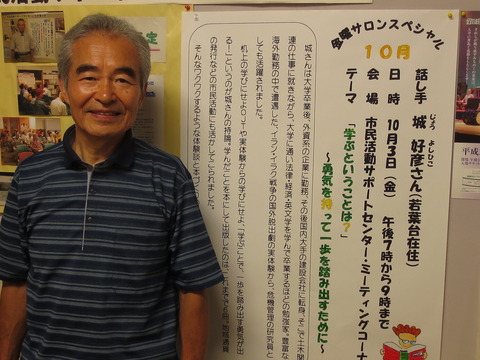 金曜サロンスペシャル
10月
話し手 城 好彦さん(若葉台在住)
じょう よしひこ
日 時 10月3日(金) 午後7時から9時まで
会 場 市民活動サポートセンター・ミーティングコーナ
テーマ 「学ぶということは?」
~勇気を持って一歩を踏み出すために~
城さんは大学卒業後、外資系の企業に勤務、その後国内大手の建設会社に転身、そこで土木関
連の仕事に就きながら、大学に通い法律・経済・英文学を学んで卒業するほどの勉強家。豊富な
海外勤務の中で遭遇した、イラン・イラク戦争の国外脱出劇の実体験から、危機管理の研究員と
しても活躍されました。
机上の学びにせよOJTや実体験からの学びにせよ、「学ぶ」ことで、一歩を踏み出す勇気が出
る!」というのが城さんの持論。学んだことを本にして出版したのは、これまでで6冊。地域通貨
の発行などの市民活動にも活かしてこられました。
そんなワクワクするような体験談と本づくり